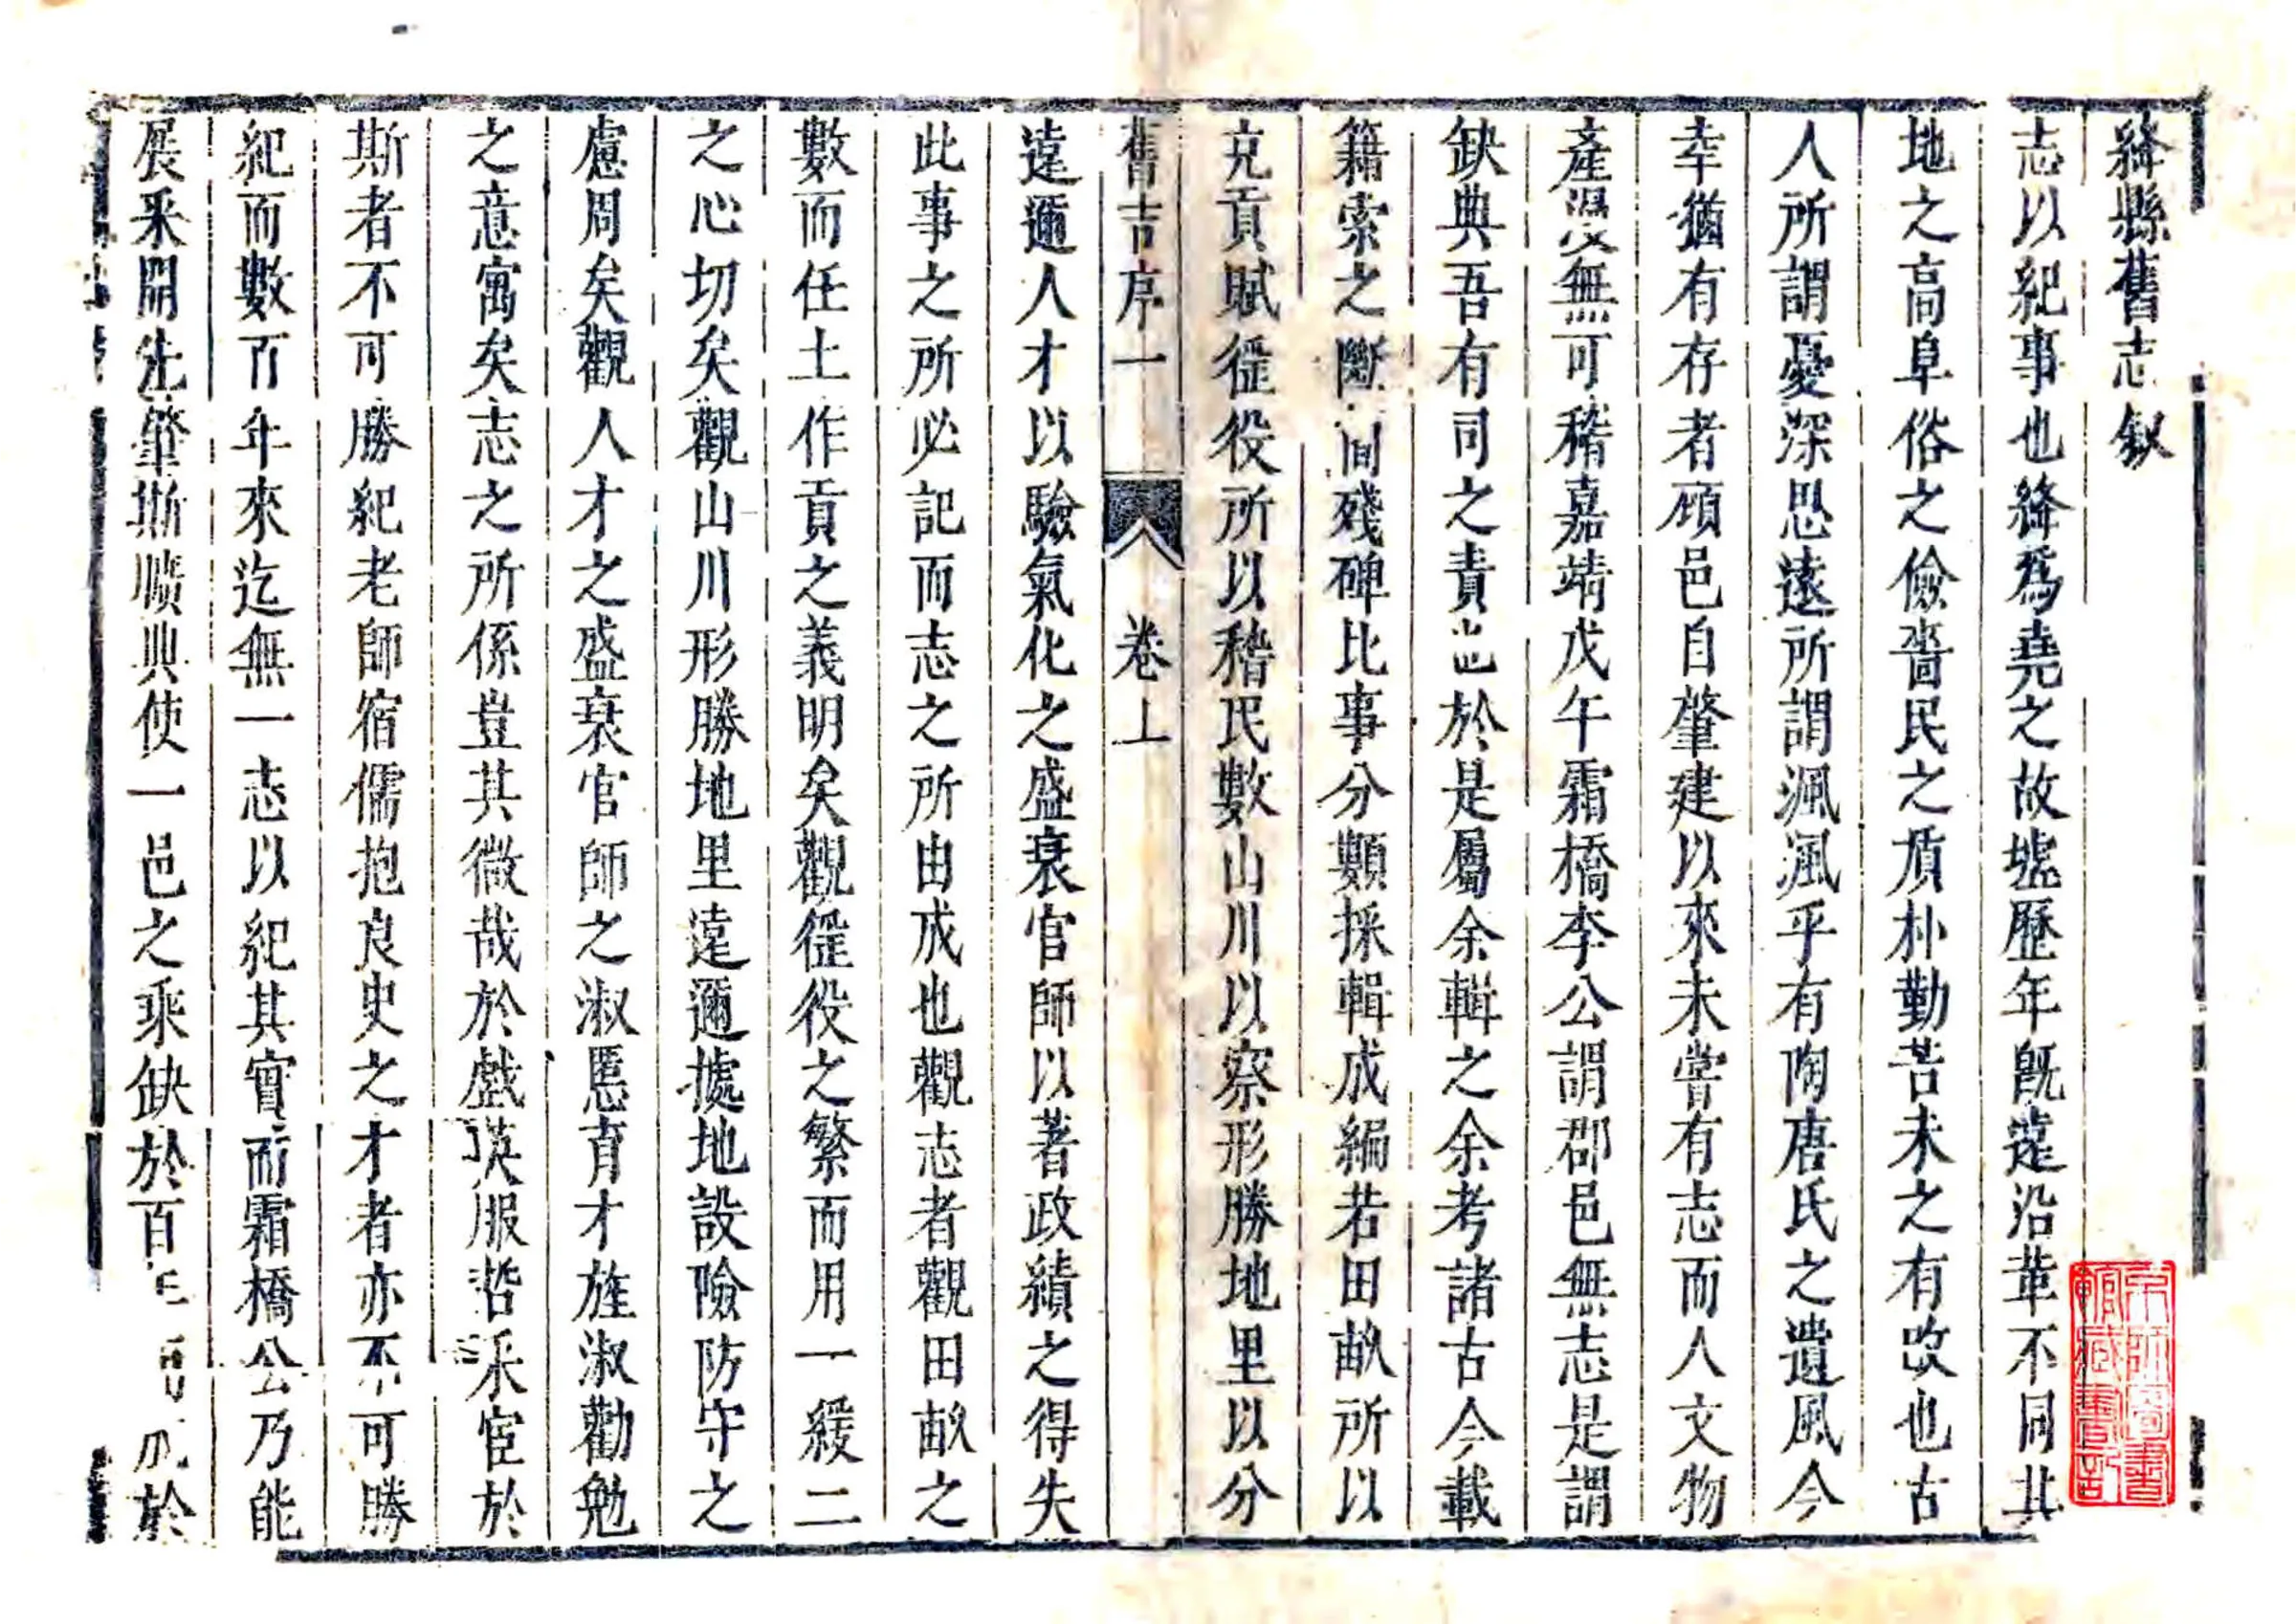 絳縣舊志叙
志以紀事也絳爲堯之故墟歷年旣遠沿革不同其
地之高阜俗之儉嗇民之質朴勤苦未之有改也古
人所謂憂深思遠所謂渢渢乎有陶唐氏之遺風今
幸猶有存者顧邑自肇建以來未嘗有志而人文物
產湮沒無可稽嘉靖戊午霜橋李公謂郡邑無志是謂
缺典吾有司之責也於是屬余輯之余考諸古今載
籍索之斷間殘碑比事分類採輯成編若田畝所以
充貢賦徭役所以稽民數山川以察形勝地里以分
舊志序一 卷上
遠邇人才以驗氣化之盛衰官師以著政績之得失
此事之所必記而志之所由成也觀志者觀田畝之
數而任土作貢之義明矣觀徭役之繁而用一緩二
之心切矣觀山川形勝地里遠邇據地設險防守之
慮周矣觀人才之盛衰官師之淑慝育才旌淑勸勉
之意寓矣志之所係豈其微哉於戲英服哲采宦於
斯者不可勝紀老師宿儒抱良史之才者亦不可勝
紀而數百年來迄無一志以紀其實而霜橋公乃能
展采開先肇斯曠典使一邑之乘缺於百年 於